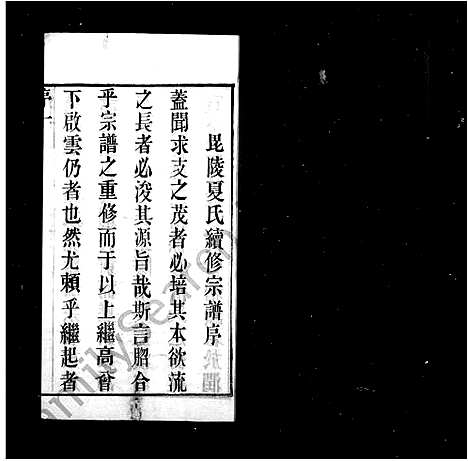 毘陵夏氏續修宗譜序
蓋聞求支之茂者必培其本欲流
之長者必浚其源旨哉斯言脗合
乎宗譜之重修而于以上繼高曾
下啟雲仍者也然尤賴乎繼起者
序一
FamilySearch